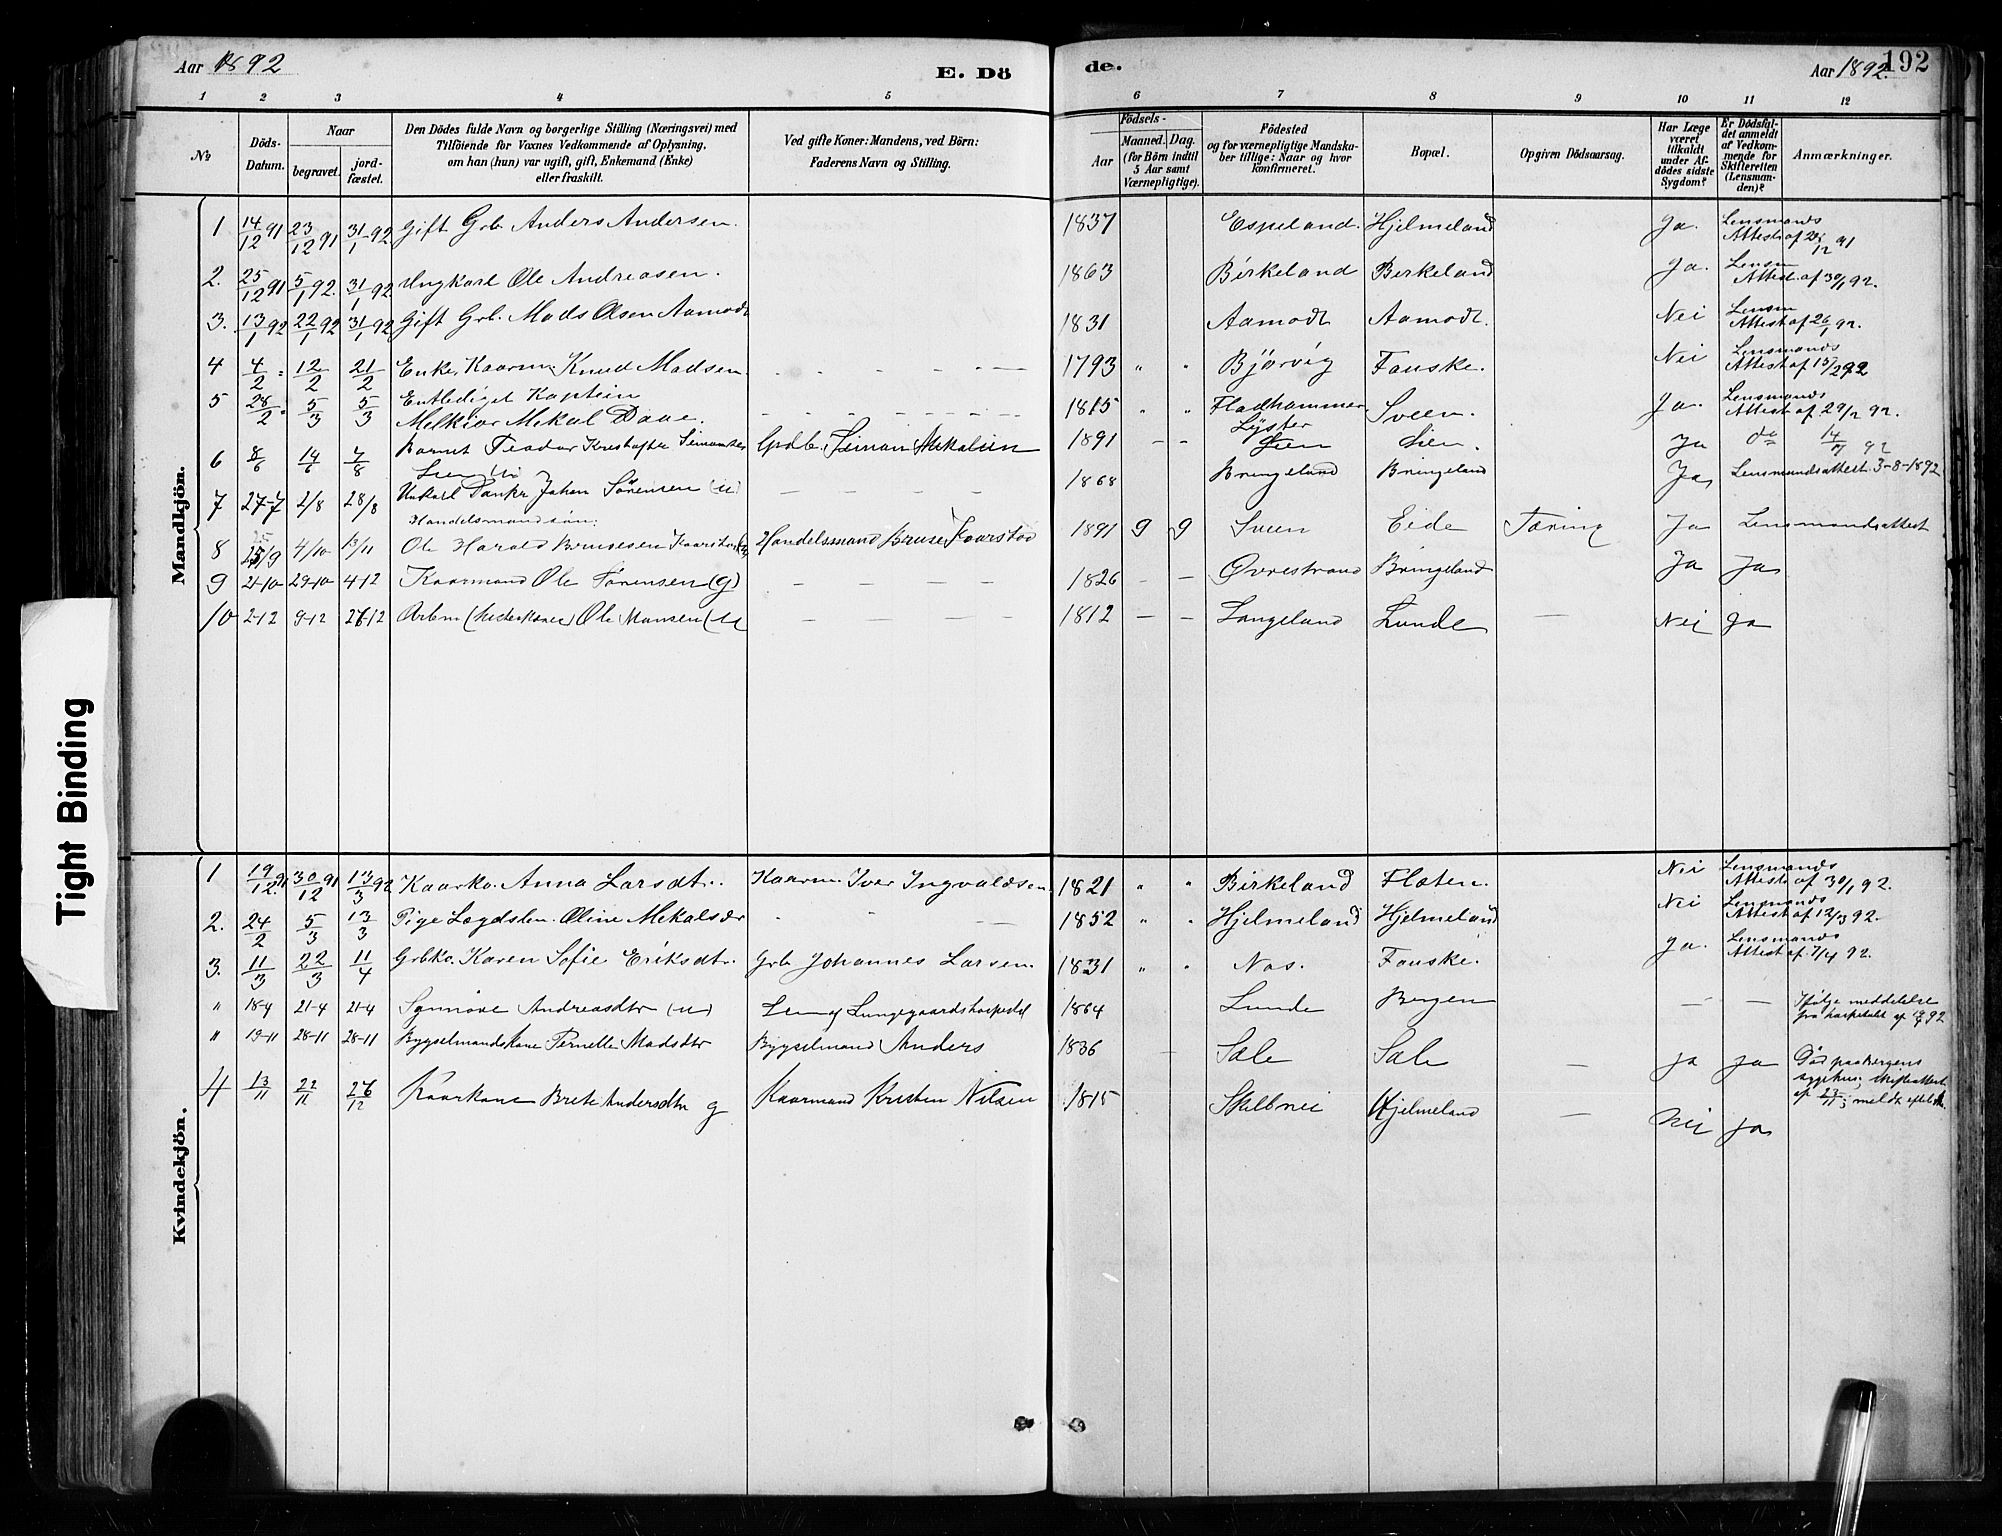 Aar 1892
E. Dö
de.
Aar 1892.
192
1 2 3 4 5 6 7 8 9 10 11 12
№
Döds-Datum.
Naar
begravet.
jord-fæstet.
Den Dödes fulde Navn og borgerlige Stilling (Næringsvei) med
Tilföiende for Voxnes Vedkommende af Oplysning,
om han (hun) var ugift, gift, Enkemand (Enke)
eller fraskilt.
Ved gifte Koner: Mandens, ved Börn:
Faderens Navn og Stilling.
Födsels-
Aar
Maaned. Dag.
(for Börn indtil
5 Aar samt
Værnepligtige).
Födested
og for værnepligtige Mandska-
ber tillige: Naar og hvor
konfirmeret.
Bopæl.
Opgiven Dödsaarsag.
Har Læge
været
tilkaldt
under Af-
dödes sidste
Sygdom?
Er Dödsfal-
det anmeldt
af Vedkom-
mende for
Skifteretten
(Lensman-
den)?
Anmærkninger.
Mandkjön.
1 14/12 91 23/12 91 31/1 92 Gift Grb. Anders Andersen. 1837 Espeland. Hjelmeland Ja. Lensmands Attest af 91
2. 25/12 91 5/1 92. 31/1 92 Ungkarl Ole Andreasen. 1863 Birkeland Birkeland Ja. Lensm Attest af 30/1 92.
3. 13/1 92 22/1 92 31/1 92 Gift Grb. Mads Olsen Aamodt 1831 Aamodt Aamodt. Nei Lensm Attest af 26/1 92.
4 4/2 12/2 21/2 Enke. Kaarm. Knud Madsen. 1793 " " Bjørvig Fauske. Nei Lensmands Attest af 15/2 92
5 28/2 5/3 5/3 Entlediget Kaptein
Melkior Mekal Daae. 1815 " " Fladhammer Lyster Sveen. Ja. Lensmands Attest af 29/2 92.
6 8/6 14/6 7/8 Barnet Teodor Simonsen Lien Grdb. Simon Mikalsen 1891 – – Lien Lien. Ja do 92
7 27-7 2/8 28/8 Unkarl Danke Johan Sørensen (u) – – – – 1868 Bringeland Bringeland Ja Lensmandsattest 3-8-1892
Handelsmandsøn:
8 25/9 4/10 13/11 Ole Harald Brusesen Kaarstad Handelsmand Bruse Kaarstad 1891 9 9 Sveen Eide Tæring Ja Lensmandsattest
9 21-10 29-10 4-12 Kaarmand Ole Sørensen (g) – – – – 1826 – – Øvrestrand Bringeland Ja Ja
10 2-12 9-12 27-12 Ole Monsen (u) – – – – 1812 – – Langeland Lunde – Nei Ja
Kvindekjön.
1 19/12 91 30/12 91 13/3 92 Kaarko. Anna Larsdtr. Kaarm. Iver Ingvaldsen 1821 " " Birkeland Flaten. Nei Lensmands Attest af 30/1 92.
2. 24/2 5/3 13/3 Pige Lægdslem Oline Mekalsdr 1852 " " Hjelmeland Hjelmeland Nei Lensmands Attest af 12/3 92.
3. 11/3 22/3 11/4 Grbko. Karen Sofie Eriksdtr. Grb Johannes Larsen. 1831 " " Nas. Fauske. Ja. Lensmands Attest af 7/4 92.
" 18-4 21-4 21-4 Synnøve Andreasdtr (u) Lem af Lungegaardshospital 1864 Lunde Bergen – – Ifølge meddelelse
fra hospitalet af 92
" 19-11 28-11 28-11 Bygselmandskone Pernelle Madsdtr Bygselmand Anders 1836 – Sæle Sæle – ja ja Død paa Bergens
sygehus; skifteattest
af 23/11;
4 13/11 22/11 26/12 Kaarkone Brete Andersdtr g Kaarmand Kristen Nilsen 1815 Hjelmeland – Nei Ja
Tight Binding